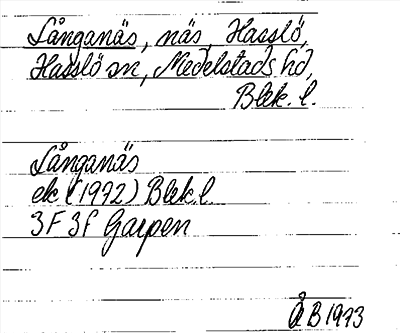 Långanäs, näs, Hasslö,
Hasslö sn, Medelstads hd,
Blek. l.
Långanäs
ek (1972) Blek. l.
3F 3f Garpen
ÅB 1973